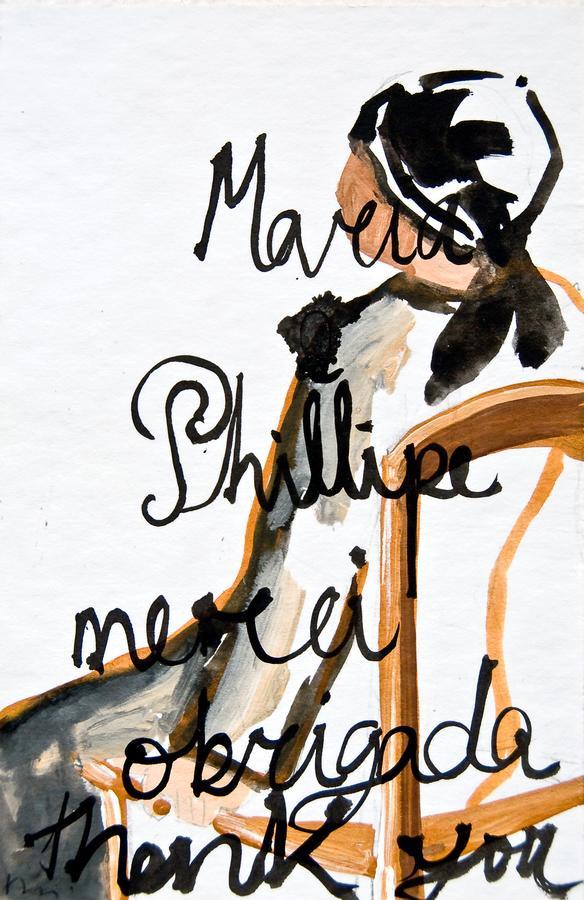 Maria
Phillipe
merci
obrigada
thank you